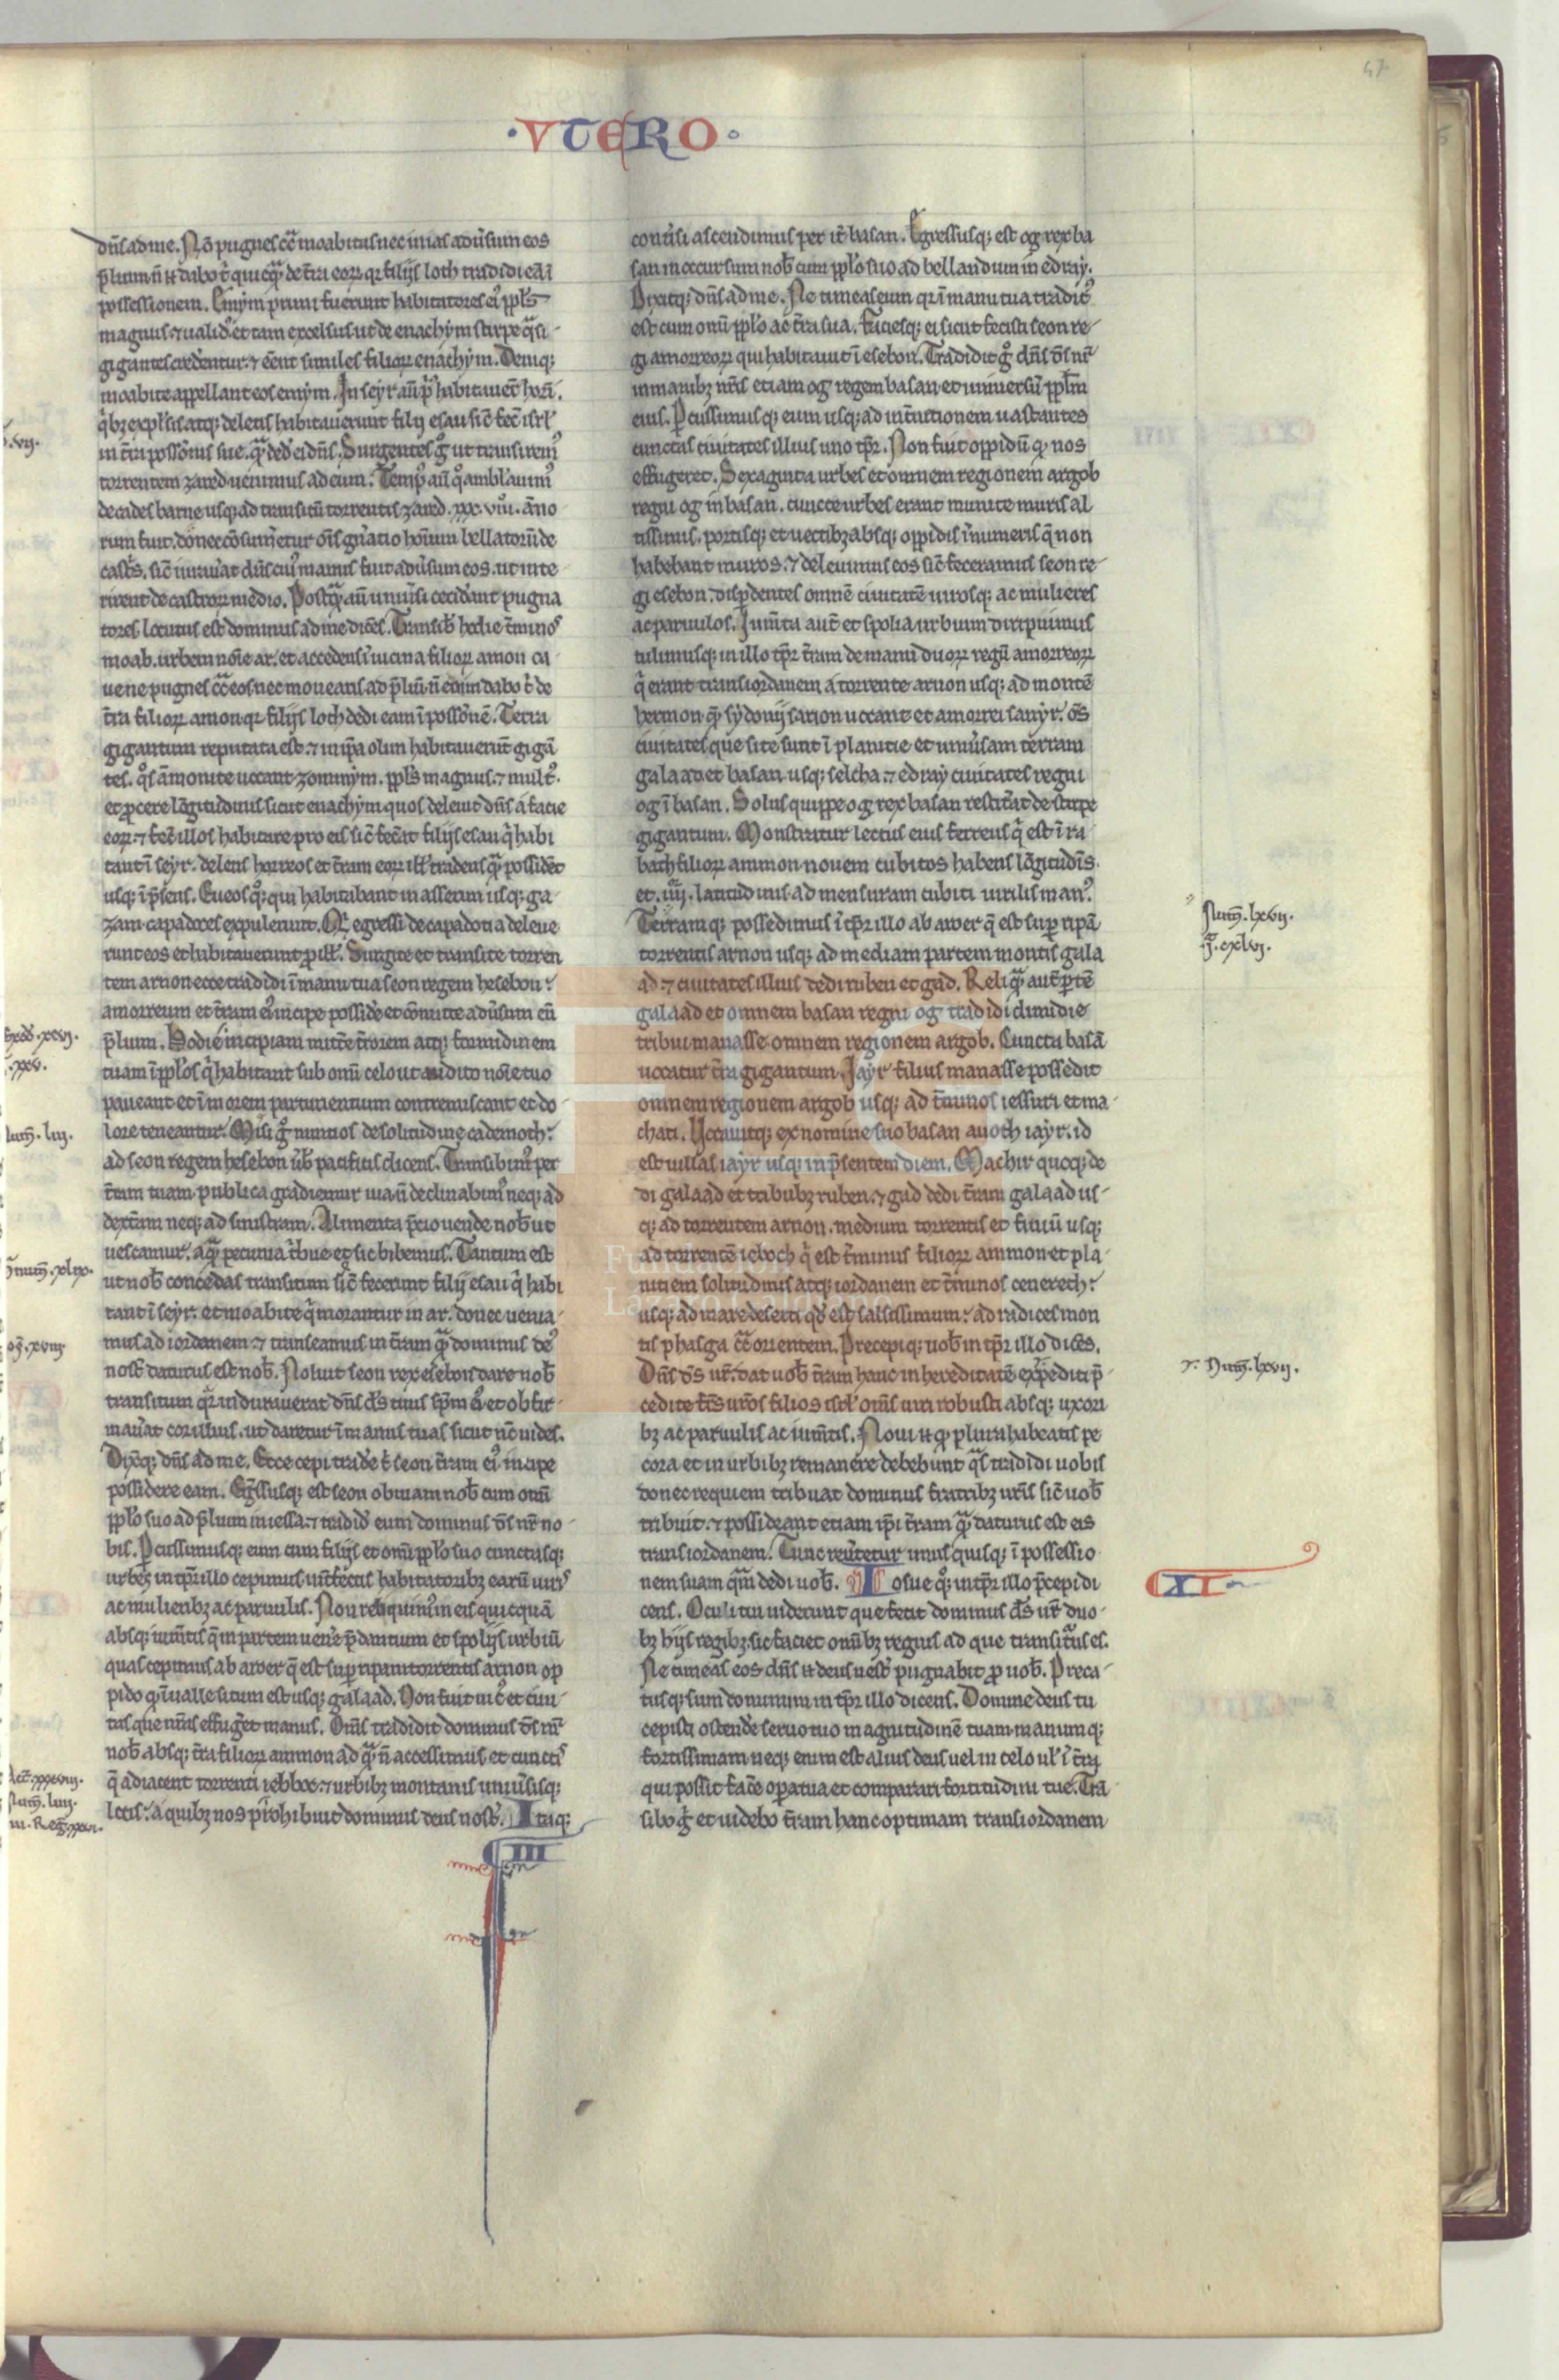 47
·VTERO·
dn̄s ad me. Nō pugnes cͣ moabitas nec inias adūsum eos
p̄lium n̄ .n. dabo t̉ quicq̄ de t̄ra eoꝝ qr filijs loth tradidi eā ī
possessionem. Emym primi fuerunt habitatores ei᷒ ppl̄s
magnus ⁊ ualid᷒ et tam excelsus ut de enachym stirpe q̄si
gigantes crederentur ⁊ eēnt similes filioꝝ enachym. Deniq;
moabite appellant eos emym. In seyr aū p̉ habitauer̄t horī.
q̉bꝫ expl̄sis atq; deletis habitauerunt filij esau sic̄ fec̄ isrl̄
in t̄ra poss̄ōnis sue. q̄ ded̉ ei dn̄s. Surgentes g̉ ut transirem᷒
torrentem zared uenimus ad eum. Temp᷒ aū q̊ ambl̄auim᷒
de cades barne usq; ad transitū torrentis zared .xxx.viii. āno
rum fuit. donec cōsumer̄etur om̄s gn̄atio hoīum bellatorū de
castr̄is. sic̄ iurau̓at dn̄s cui᷒ manus fuit adūsum eos. ut inte
rirent de castroꝝ medio. Postq̄ aū uniūsi cecider̄ant pugna
tores. locutus est dominus ad me dicēs. Transib̓ hodie t̄minos
moab. urbem noīe ar. et accedens ī uicina filioꝝ amon ca
ue ne pugnes cͣ eos nec mouearis ad p̄liū. n̄ enim dabo t̉ de
t̄ra filioꝝ amon qr filijs loth dedi eam ī poss̄ōnē. Terra
gigantum reputata est. ⁊ in ip̄a olim habitauerūt gigā
tes. q̊s āmonite uocant zommym. ppl̄s magnus. ⁊ mult᷒.
et ꝓcere lōgitudinis sicut enachym quos deleuit dn̄s a facie
eoꝝ. ⁊ fec̄ illos habitare pro eis sic̄ fec̄at filijs esau q̉ habi
tant ī seyr. delens horreos et t̄ram eoꝝ ill̄ tradens q̄ possidēt
usq; ī p̄sens. Eueos q̊; qui habitabant in asserim usq; ga
zam capadoces expulerunt. Q̉ egressi de capadotia deleue
runt eos et habitauerunt ꝓ ill̄. Surgite et transite torren
tem arnon ecce tradidi ī manu tua seon regem hesebon
amorreum et t̄ram ei᷒ incipe possid̓e et cōmitte adūsum eū
p̄lium. Hodie incipiam mitt̄e t̄rorem atq; formidinem
tuam ī ppl̄os q̉ habitant sub omī celo ut audito noīe tuo
paueant et ī morem parturientium contremiscant et do
lore teneantur. Misi g̉ nuntios de solitudine cademoth
ad seon regem hesebon ūb̓ pacificis dicens. Transibim᷒ per
t̄ram tuam. publica gradiemur uia. n̄ declinabim᷒ neq; ad
dext̄am neq; ad sinistram. Alimenta p̄cio uende nob̓ ut
uescamur. aq̄ pecunia t̉bue et sic bibemus. Tantum est
ut nob̓ concedas transitum sic̄ fecerunt filij esau q̉ habi
tant ī seyr. et moabite q̉ morantur in ar. donec uenia
mus ad iordanem. ⁊ transeamus in t̄ram q̄ dominus de᷒
nost̄ daturus est nob̓. Noluit seon rex esebon dare nob̓
transitum qr̉ indurauerat dn̄s ds̄ tuus sp̄m ei᷒ et obfir
mau̓at cor illius. ut daretur ī manus tuas sicut nc̄ uides.
Dix̓q; dn̄s ad me. Ecce cepi trad̓e t̉ seon t̄ram ei᷒ incipe
possidere eam. Egr̄ssusq; est seon obuiam nob̓ cum omī
ppl̄o suo ad p̄lium in iessa. ⁊ tradid̓ eum dominus ds̄ nr̄ no
bis. Percussimusq; eum cum filijs et omī ppl̄o suo cunctasq;
urbes in tp̄r illo cepimus. int̄fectis habitatoribꝫ earū uiris
ac mulieribꝫ ac paruulis. Non reliquim᷒ in eis quicquā
absq; iumt̄is q̄ in partem uener̄e p̄dantium et spolijs urbiū
quas cepimus ab aroer q̄ est sup̱ ripam torrentis arnon op
pido q̱ ī ualle situm est usq; galaad. Non fuit uic᷒ et ciui
tas que nr̄as effug̓et manus. Om̄s tradidit dominus ds̄ nr̄
nob̓ absq; t̄ra filioꝝ ammon ad q̄ n̄ accessimus et cunctis
q̄ adiacent torrenti iebboc. ⁊ urbibꝫ montanis uniūsisq;
locis. a quibꝫ nos p̉ohibuit dominus deus nost̄. Itaq;
III
conūsi ascendimus per it̓ basan. Egressusq; est og rex ba
san in occursum nob̓ cum ppl̄o suo ad bellandum in edray.
Dixitq; dn̄s ad me. Ne timeas eum qr ī manu tua tradit᷒
est cum omī ppl̄o ac t̄ra sua. faciesq; ei sicut fecisti seon re
gi amorreoꝝ qui habitauit ī esebon. Tradidit g̉ dn̄s ds̄ nr̄
in manibꝫ nr̄is etiam og regem basan et uniuersū ppl̄m
eius. Percussimusq; eum usq; ad int̄nitionem uastantes
cunctas ciuitates illius uno tp̄r. Non fuit oppidū q̱ nos
effugeret. Sexaginta urbes et omnem regionem argob
regni og in basan. cuncte urbes erant munite muris al
tissimis. portisq; et uectibꝫ absq; oppidis īnumeris q̄ non
habebant muros. ⁊ deleuimus eos sic̄ feceramus seon re
gi esebon. disp̱dentes omnē ciuitatē uirosq; ac mulieres
ac paruulos. Iumt̄a aut̄ et spolia urbium diripuimus
tulimusq; in illo tp̄r t̄ram de manu duoꝝ regū amorreoꝝ
q̉ erant trans iordanem a torrente arnon usq; ad montē
hermon q̄ sydonij sarion uocant et amorrei sanyr. om̄s
ciuitates que site sunt ī planitie et uniūsam terram
galaad et basan usq; selcha. ⁊ edray ciuitates regni
og ī basan. Solus quippe og rex basan restit̓at de stirpe
gigantum. Monstratur lectus eius ferreus q̉ est ī ra
bath filioꝝ ammon nouem cubitos habens lōgitudīs.
et .iiii. latitudinis ad mensuram cubiti uirilis man᷒.
Terramq; possedimus ī tp̄r illo ab aroer q̄ est sup̱ ripā
torrentis arnon usq; ad mediam partem montis gala
ad. ⁊ ciuitates illius dedi ruben et gad. Reliq̄ aut̄ p̱tē
galaad et omnem basan regni og tradidi dimidie
tribui manasse omnem regionem argob. Cuncta basā
uocatur t̄ra gigantum. Iayr filius manasse possedit
omnem regionem argob usq; ad t̄minos iessuri et ma
chati. Uocauitq; ex nomine suo basan auoth iayr. id
est uillas iayr usq; in p̄sentem diem. Machir quoq; de
di galaad et tribubꝫ ruben. ⁊ gad dedi t̄ram galaad us
q; ad torrentem arnon. medium torrentis et finiū usq;
ad torrentē ieboch q̉ est t̄minus filioꝝ ammon et pla
nitiem solitudinis atq; iordanem et t̄minos cenerech
usq; ad mare deserti qd̓ est salsissimum. ad radices mon
tis phasga cͣ orientem. Precepiq; uob̓ in tp̄r illo dicēs.
Dn̄s ds̄ ur̄ dat uob̓ t̄ram hanc in hereditatē expediti p̄
cedite fr̄s ur̄os filios isrl̄ om̄s uiri robusti absq; uxori
bꝫ ac paruulis ac iumt̄is. Noui .n. q̱ plura habeatis pe
cora et in urbibꝫ remanere debebunt q̄s tradidi uobis
donec requiem tribuat dominus fratribꝫ ur̄is sic̄ uob̓
tribuit. ⁊ possideant etiam ip̄i t̄ram q̄ daturus est eis
trans iordanem. Tunc reūtetur unus quisq; ī possessio
nem suam q̄m dedi uob̓. Iosue q̊; in tp̄r illo p̄cepi di
cens. Oculi tui uiderunt que fecit dominus ds̄ ur̄ duo
bꝫ hijs regibꝫ. sic faciet omībꝫ regnis ad que transit̓us es.
Ne timeas eos dn̄s .n. deus uest̄ pugnabit ꝓ uob̓. Preca
tusq; sum dominum in tp̄r illo dicens. Domine deus tu
cepisti ostend̓e seruo tuo magnitudinē tuam manumq;
fortissimam neq; enim est alius deus uel in celo ul̄ ī t̄ra
qui possit fac̓e op̱a tua et comparari fortitudini tue. Trā
sibo g̉ et uidebo t̄ram hanc optimam trans iordanem
Num̄. lxvii.
. cxlvi.
⁊. Num̄. lxvii.
XI
Fundación
Lázaro Galdiano